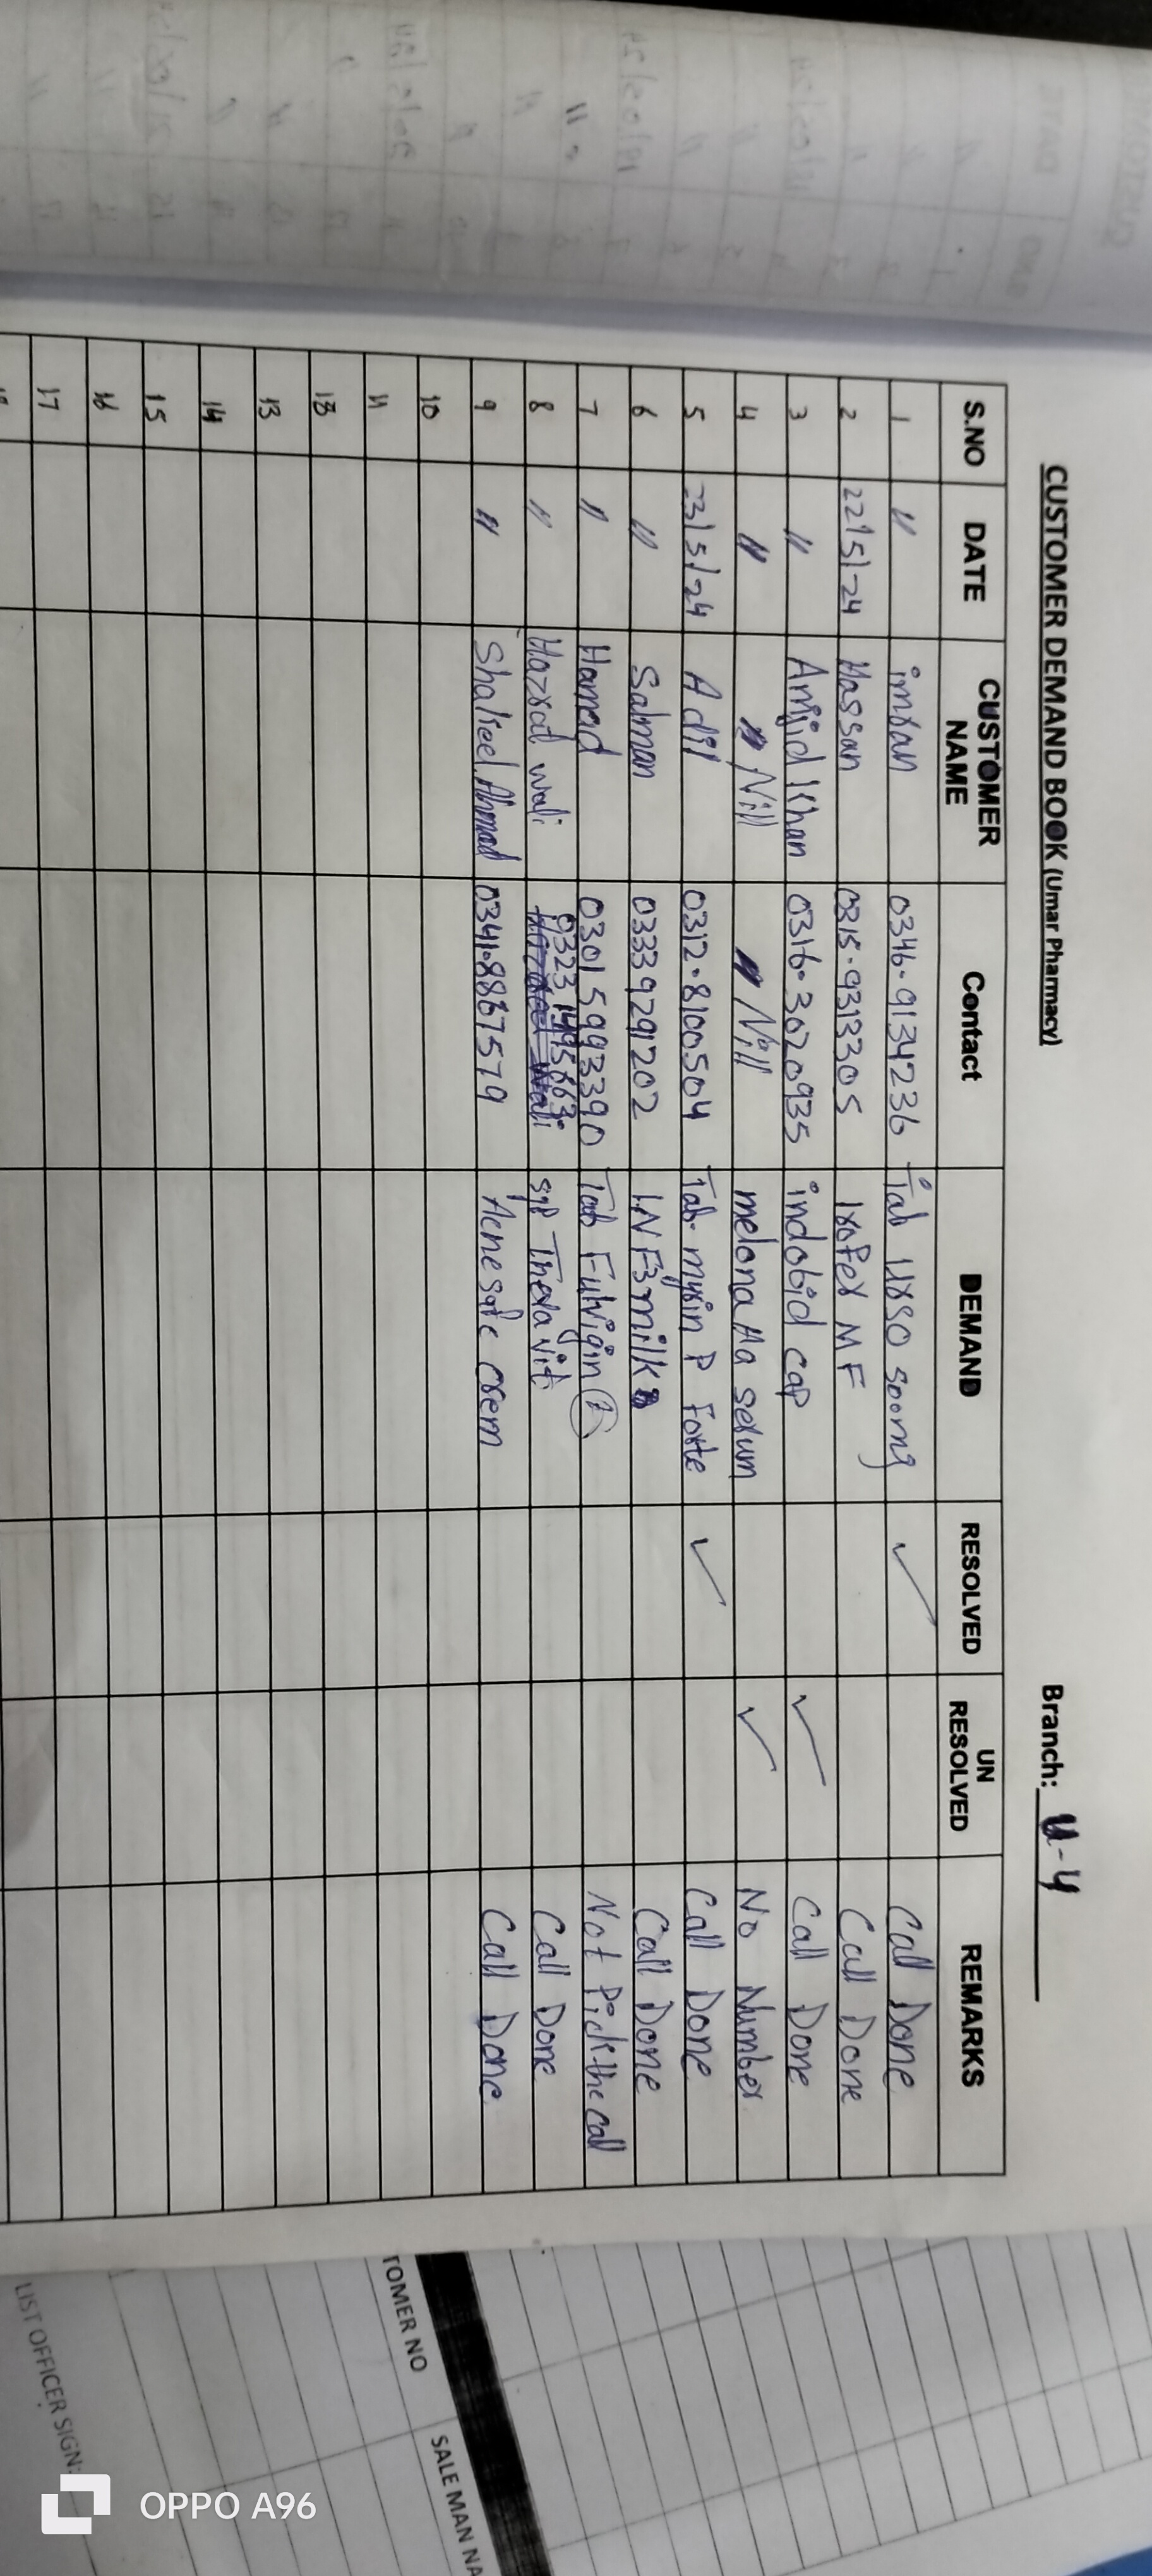 CUSTOMER DEMAND BOOK (Umar Pharmacy) Branch: U-4
S.NO DATE CUSTOMER NAME Contact DEMAND RESOLVED UN RESOLVED REMARKS
1 " imran 0346-9134236 Tab urso 500mg ✓ Call Done
2 22/5/24 Hassan 0315-9313305 MF Call Done
3 " Amjid Khan 0316-3020935 indobid cap ✓ Call Done
4 " Nill Nill melona Ha serum ✓ No Number
5 23/5/24 Adil 0312-8100504 Tab. myrin P Forte ✓ Call Done
6 " Salman 03339291202 milk Call Done
7 " Hamed 03015993390 Tab Fulvigin Not Pick the call
8 " Hazrat wali 0323 syp Thera vit Call Done
9 " Shakeel Ahmad 0341-8867579 Acne safe crem Call Done
10
11
13
14
15
16
17
TOMER NO
SALE MAN NA
LIST OFFICER SIGN:
OPPO A96